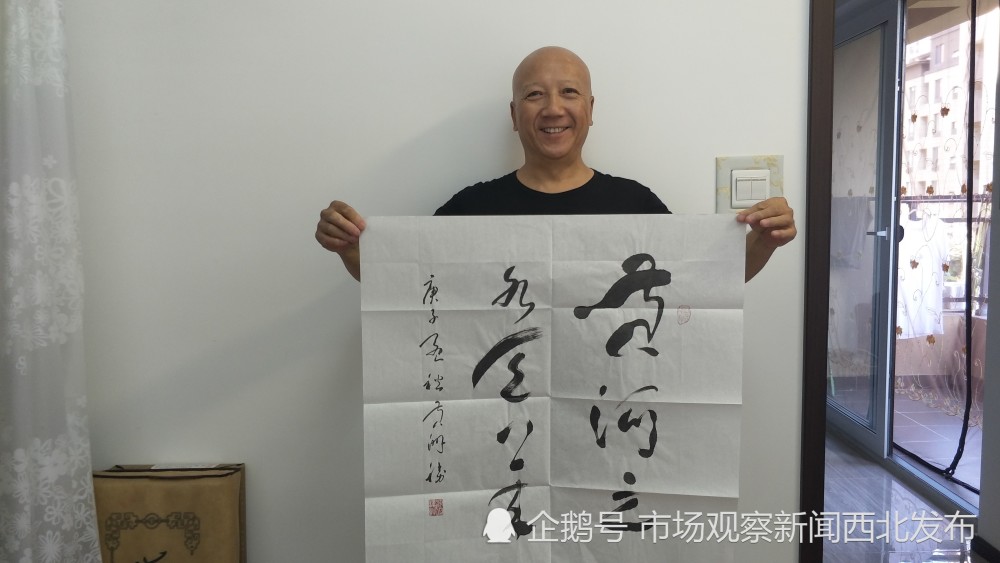 黄河之
水天上来
庚子孟秋
企鹅号 市场观察新闻西北发布